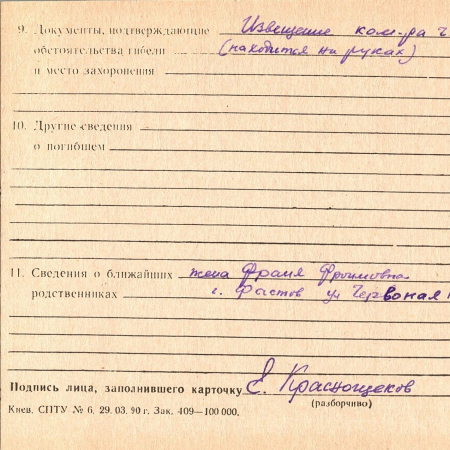 9. Документы, подтверждающие Извещение ком-ра ч
обстоятельства гибели (находится на руках)
и место захоронения
10. Другие сведения
о погибшем
11. Сведения о ближайших жена Франя Фроимовна
родственниках г. Фастов ул Червоная
Подпись лица, заполнившего карточку Е. Краснощеков
(разборчиво)
Киев. СПТУ № 6. 29. 03. 90 г. Зак. 409—100 000.